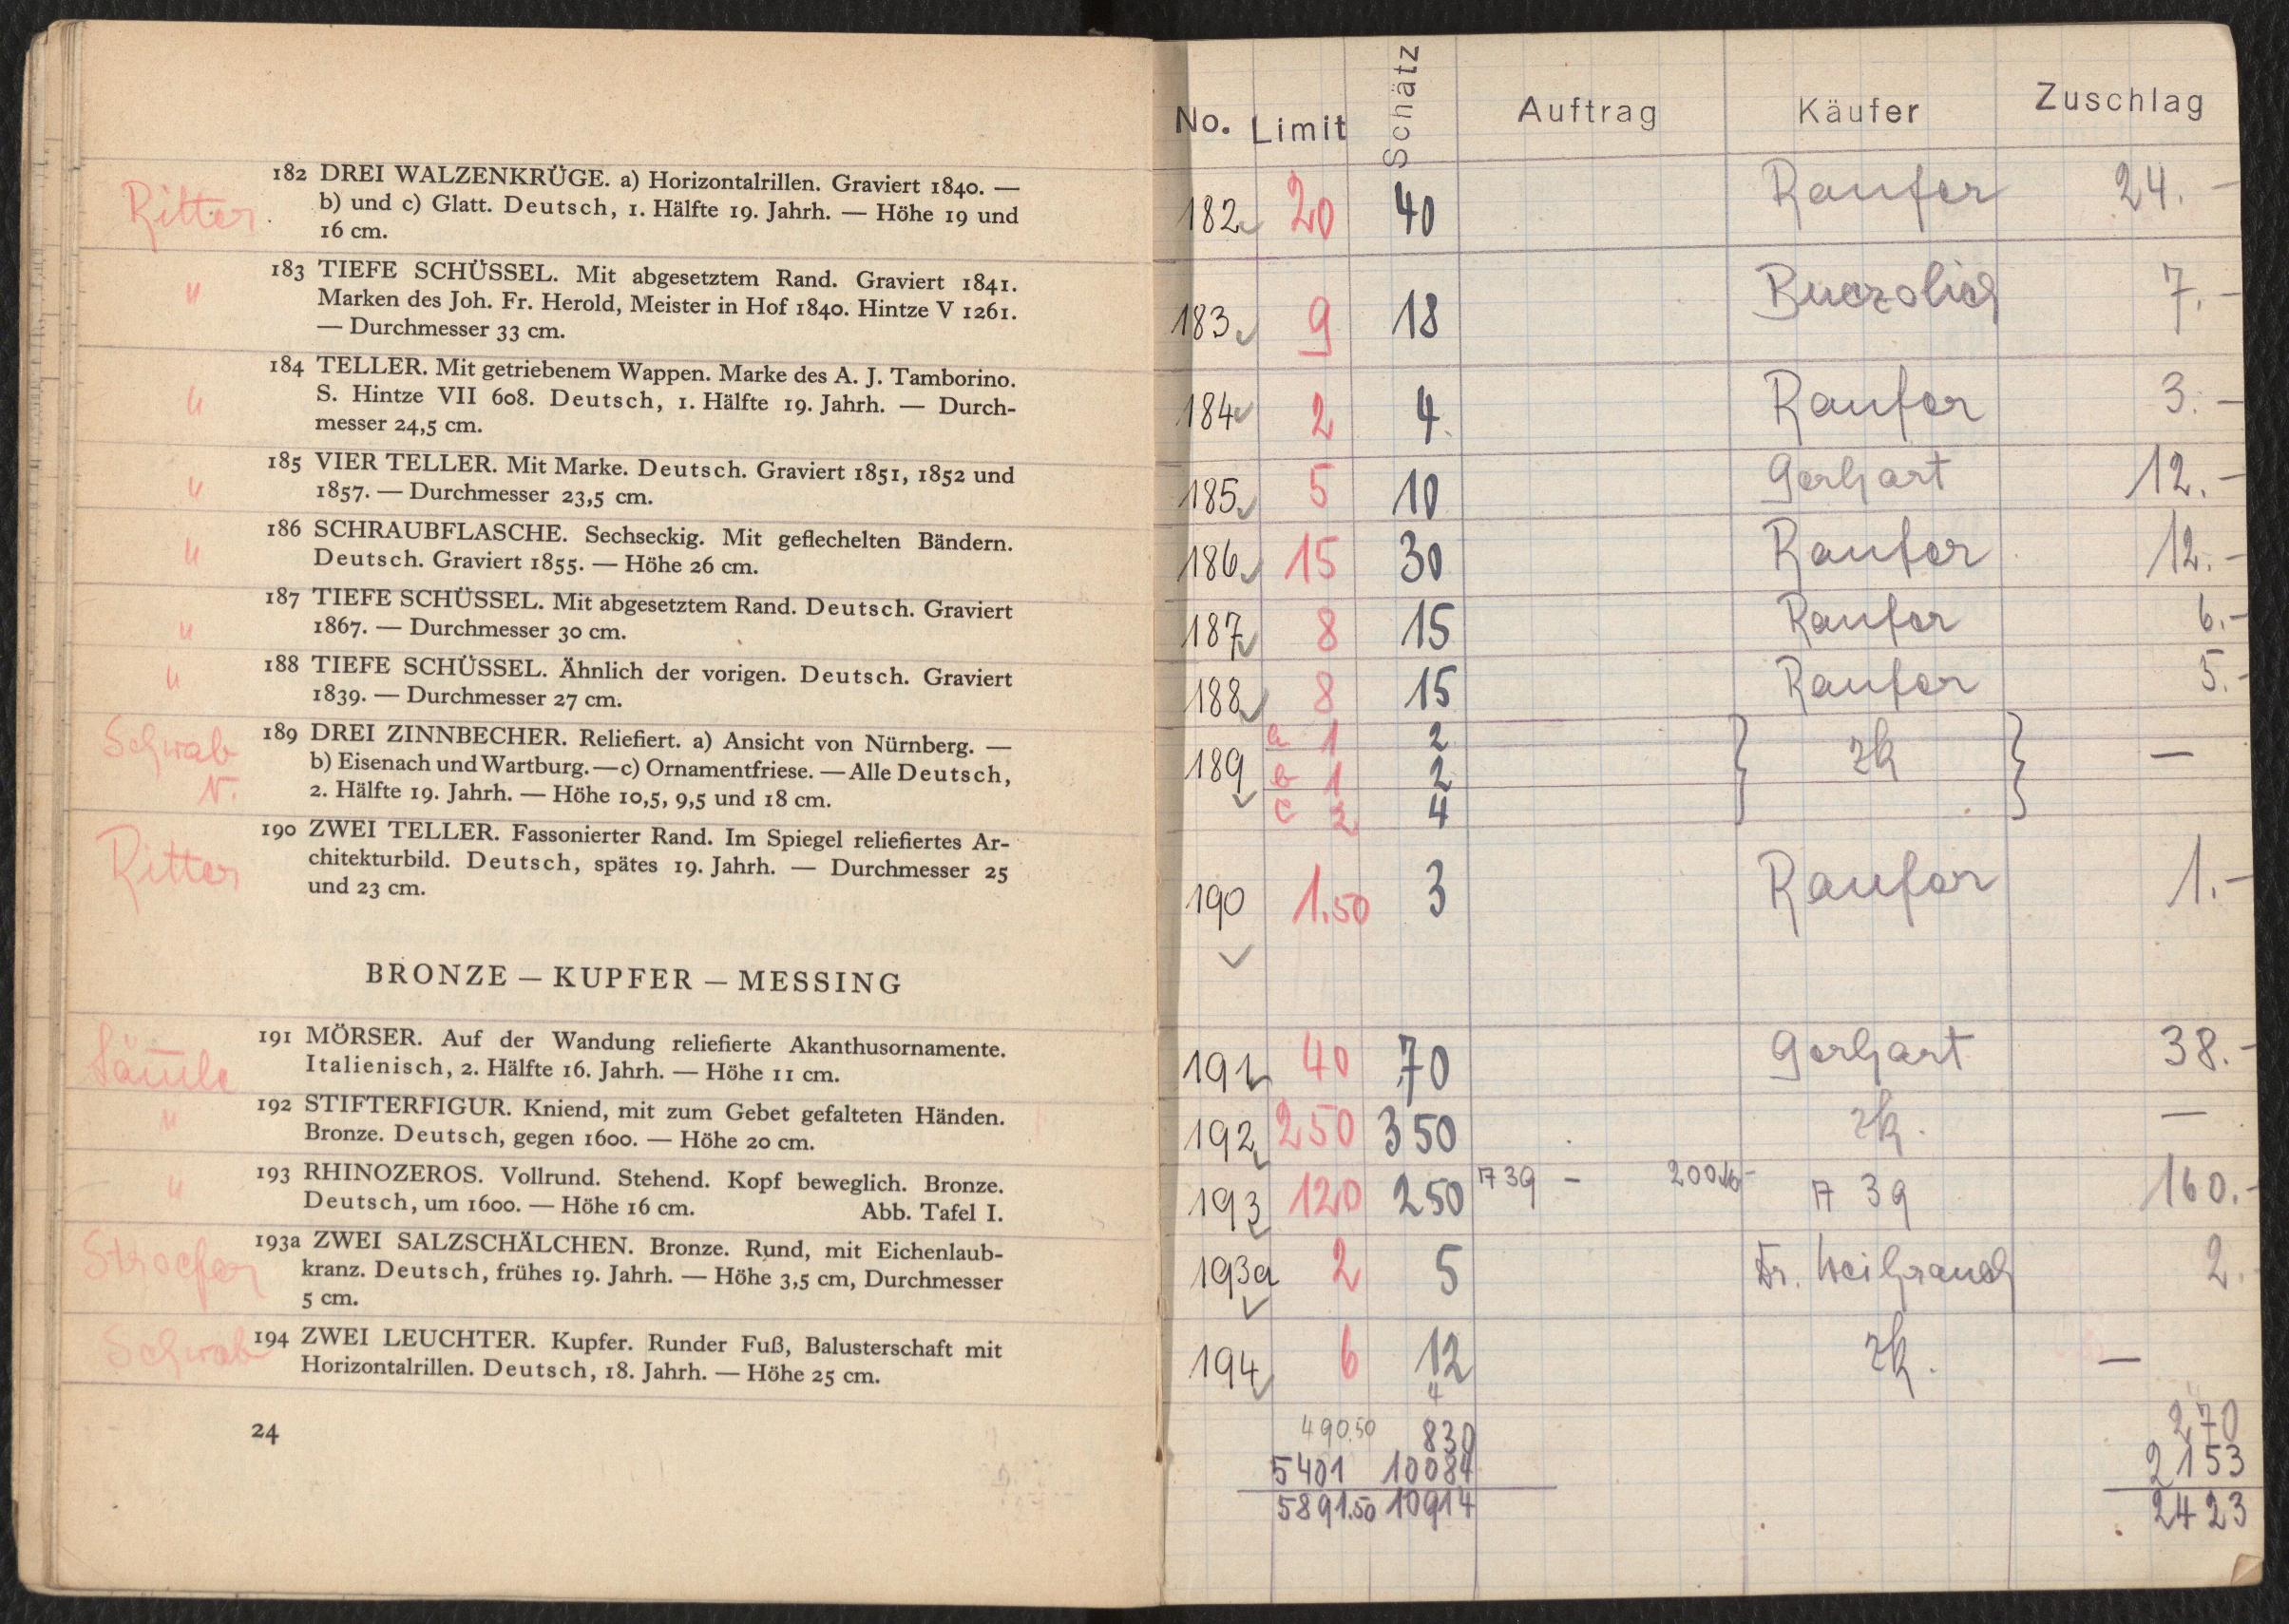 Ritter
182 DREI WALZENKRÜGE. a) Horizontalrillen. Graviert 1840. —
b) und c) Glatt. Deutsch, 1. Hälfte 19. Jahrh. — Höhe 19 und
16 cm.
" 183 TIEFE SCHÜSSEL. Mit abgesetztem Rand. Graviert 1841.
Marken des Joh. Fr. Herold, Meister in Hof 1840. Hintze V 1261.
— Durchmesser 33 cm.
" 184 TELLER. Mit getriebenem Wappen. Marke des A. J. Tamborino.
S. Hintze VII 608. Deutsch, 1. Hälfte 19. Jahrh. — Durch-
messer 24,5 cm.
" 185 VIER TELLER. Mit Marke. Deutsch. Graviert 1851, 1852 und
1857. — Durchmesser 23,5 cm.
" 186 SCHRAUBFLASCHE. Sechseckig. Mit geflechelten Bändern.
Deutsch. Graviert 1855. — Höhe 26 cm.
" 187 TIEFE SCHÜSSEL. Mit abgesetztem Rand. Deutsch. Graviert
1867. — Durchmesser 30 cm.
" 188 TIEFE SCHÜSSEL. Ähnlich der vorigen. Deutsch. Graviert
1839. — Durchmesser 27 cm.
Schwab N.
189 DREI ZINNBECHER. Reliefiert. a) Ansicht von Nürnberg. —
b) Eisenach und Wartburg. — c) Ornamentfriese. — Alle Deutsch,
2. Hälfte 19. Jahrh. — Höhe 10,5, 9,5 und 18 cm.
Ritter
190 ZWEI TELLER. Fassonierter Rand. Im Spiegel reliefiertes Ar-
chitekturbild. Deutsch, spätes 19. Jahrh. — Durchmesser 25
und 23 cm.
BRONZE — KUPFER — MESSING
191 MÖRSER. Auf der Wandung reliefierte Akanthusornamente.
Italienisch, 2. Hälfte 16. Jahrh. — Höhe 11 cm.
" 192 STIFTERFIGUR. Kniend, mit zum Gebet gefalteten Händen.
Bronze. Deutsch, gegen 1600. — Höhe 20 cm.
" 193 RHINOZEROS. Vollrund. Stehend. Kopf beweglich. Bronze.
Deutsch, um 1600. — Höhe 16 cm. Abb. Tafel I.
Stroefer
193a ZWEI SALZSCHÄLCHEN. Bronze. Rund, mit Eichenlaub-
kranz. Deutsch, frühes 19. Jahrh. — Höhe 3,5 cm, Durchmesser
5 cm.
Schwab
194 ZWEI LEUCHTER. Kupfer. Runder Fuß, Balusterschaft mit
Horizontalrillen. Deutsch, 18. Jahrh. — Höhe 25 cm.
24
No. Limit Schätz Auftrag Käufer Zuschlag
182 20 40 Raufer 24.-
183 9 18 7.-
184 2 4 Raufer 3.-
185 5 10 Gerhart 12.-
186 15 30 Raufer 12.-
187 8 15 Raufer 6.-
188 8 15 Raufer 5.-
189 a 1 2 zk —
b 1 2
c 2 4
190 1.50 3 Raufer 1.-
191 40 70 Gerhart 38.-
192 250 350 zk. —
193 120 250 39 - 200 39 160.-
193a 2 5 Dr. 2.
194 6 12 zk. —
4
490.50 830 270
5401 10084 2153
5891.50 10914 2423